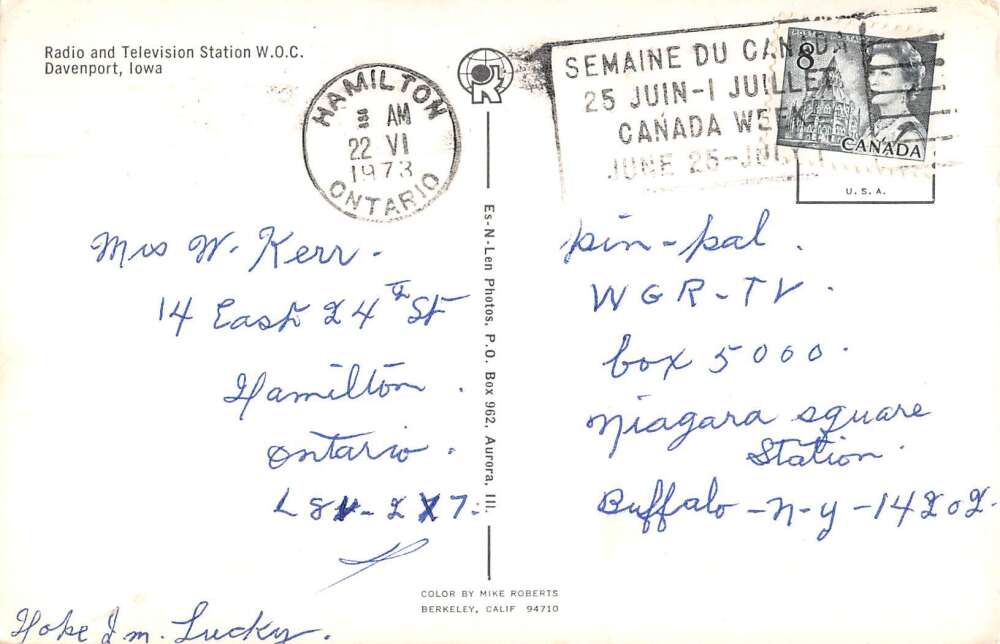 Radio and Television Station W.O.C.
Davenport, Iowa
HAMILTON
AM
22 VI
1973
ONTARIO
SEMAINE DU CANADA
25 JUIN-1 JUILLET
CANADA WEEK
JUNE 25-JULY 1
8
CANADA
U.S.A.
Mrs W. Kerr.
14 East 24th St
Hamilton.
Ontario.
L8V-2X7.
Hope I m. Lucky.
Es-N-Len Photos, P.O. Box 962, Aurora, Ill.
pin-pal.
WGR-TV.
box 5000.
Niagara square
Station.
Buffalo-N-y-14202.
COLOR BY MIKE ROBERTS
BERKELEY, CALIF 94710